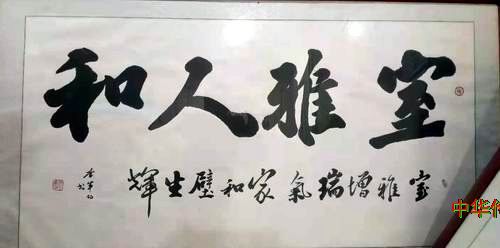 室雅人和
室雅增瑞氣家和璧生輝
中华